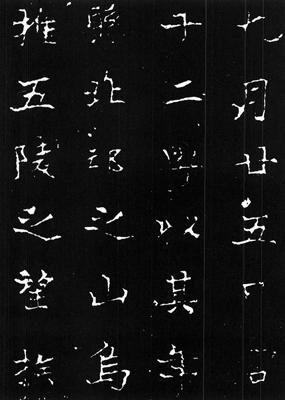 九月廿五日
十二與以其年
興北邙之山烏
推五陵之望族